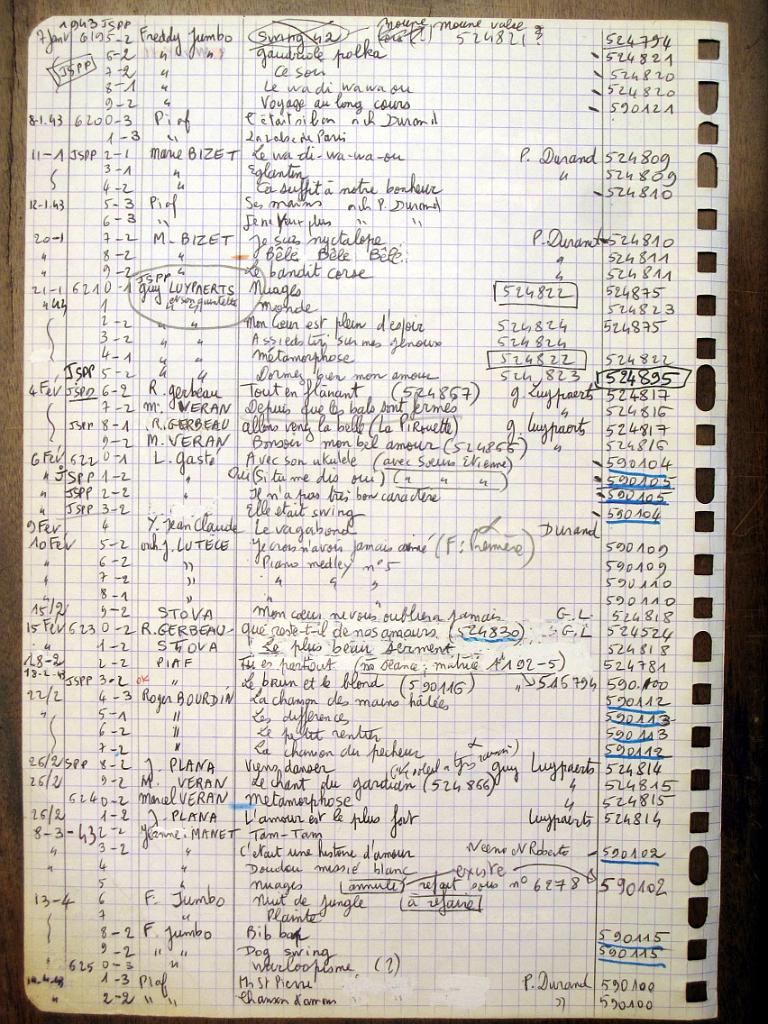 1943 JSPP moune moune valse
7 janv 6195-2 Freddy Jumbo Swing 42 524821? 524794
6-2 " " gaudriole polka 524821
JSPP 7-2 " Ce soir 524820
8-1 " Le wa di wa wa ou 524820
9-2 " Voyage au long cours 590121
8-1.43 6200-3 Piaf C'était si bon orch Durand
1-3 " La valse de Paris
11-1 JSPP 2-1 Marie BIZET Le wa-di-wa-wa-ou P. Durand 524809
3-1 " Eglantin " 524809
4-2 " Ca suffit à notre bonheur 524810
12-1.43 5-3 Piaf Ses mains orch P. Durand
6-3 " J'en plus " "
20-1 7-2 M. BIZET Je suis nyctalope P. Durant 524810
" 8-2 " Bêlê Bêlê Bêlê " 524811
" 9-2 " Le bandit corse " 524811
21-1 6210-1 JSPP guy LUYPAERTS Nuages 524822 524875
1 et son quintette monde 524823
2-2 " " Mon cœur est plein d'espoir 524824 524875
3-2 " " Assieds toi sur mes genoux 524824
4-1 " " métamorphose 524822 524822
JSPP 5-2 " " Dormez bien mon amour 524 823 524895
4 Fev JSPP 6-2 R. gerbeau Tout en flanant (524867) g Luypaerts 524817
7-2 M. VERAN Depuis que les bals sont fermés " 524816
JSPP 8-1 R. GERBEAU allons venez la belle (La Pirouette) g. Luypaerts 524817
9-2 M. VERAN Bonsoir mon bel amour (524866) " 524816
6 Fev 6220-1 L. gasté Avec son ukulele (avec Sœurs Etienne) 590104
" JSPP 1-2 " Oui (Si tu me dis oui) (" " ") 590105
" JSPP 2-2 " Il n'a pas très bon caractère 590105
" JSPP 3-2 Elle était swing 590104
9 Fev 4 Y. Jean Claude Le vagabond Durand
10 Fev 5-2 orch J. LUTECE Je crois n'avoir jamais aimé (F: Première) 590109
" 6-2 " Piano medley n°5 590109
" 7-2 " " " " 590110
" 8-1 " " 590110
15/2 9-2 STOVA Mon cœur ne vous oubliera jamais G.L. 524818
15 Fev 6230-2 R. GERBEAU que reste-t-il de nos amours (524830) G.L 524524
" 1-2 STOVA Le plus beau serment 524818
18-2 2-2 PIAF Tu es partout (no séance; matrice 1192-5) 524781
18-2-43 JSPP 3-2 OK " Le brun et le blond (590116) " 515794 590.100
22/2 4-3 Roger BOURDIN La chanson des mains hâlées 590112
" 5-1 " Les différences 590113
6-2 " Le petit rentier 590113
7-2 " La chanson du pecheur 590112
26/2 JSPP 8-2 J. PLANA Viens danser guy Luypaerts 524814
26/2 9-2 M. VERAN Le chant du gardian (524866) " 524815
6240-2 marcel VERAN Métamorphose " 524815
26/2 1-2 J. PLANA L'amour est le plus fort Luypaerts 524814
8-3-43 2-2 Jeanne MANET Tam-Tam
" 3-2 " C'était une histoire d'amour 590102
" 4 " Doudou missié blanc existe
" 5 " nuages annulé refait sous n° 6278 590102
13-4 6 F. Jumbo Nuit de jungle à refaire
7 " Plainte
8-2 F. Jumbo Bib bop 590115
9-2 " " Dog swing 590115
6250-3 " warloopisme (?)
1-3 Piaf Mr St Pierre P. Durand 590100
" 2-2 " " Chanson d'amour " 590100